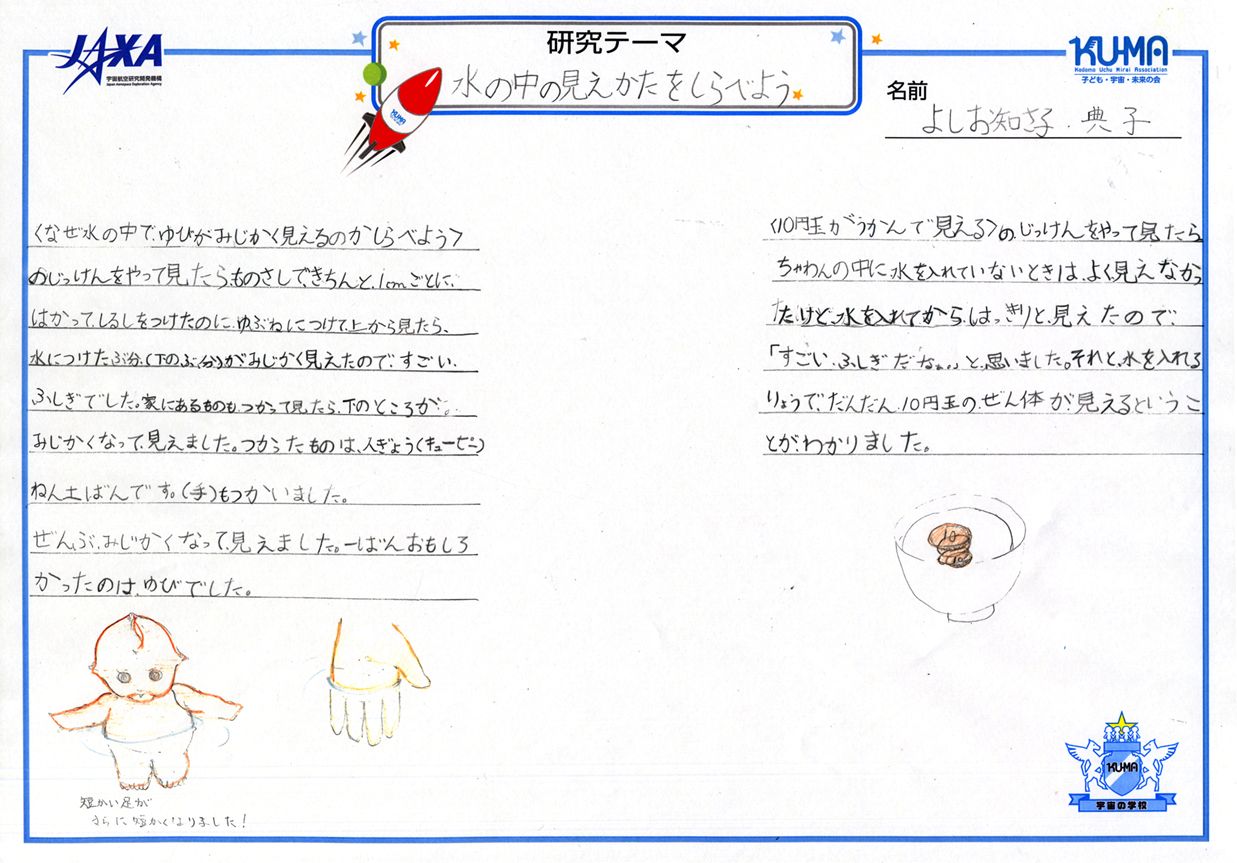 JAXA
宇宙航空研究開発機構
Japan Aerospace Exploration Agency
研究テーマ
水の中の見えかたをしらべよう
KUMA
Kodomo Uchu Mirai Association
子ども・宇宙・未来の会
名前
よしお知さ子・典子
KUMA
〈なぜ水の中で、ゆびがみじかく見えるのかしらべよう〉
のじっけんをやって見たら、ものさしできちんと、1cmごとに、
はかって、しるしをつけたのに、ゆぶねにつけて、上から見たら、
水につけたぶ分、(下のぶ分)がみじかく見えたので、すごい、
ふしぎでした。家にあるものも、つかって見たら、下のところが、
みじかくなって、見えました。つかったものは、人ぎょう(キューピー)
ねん土ばんです。(手)もつかいました。
ぜんぶ、みじかくなって、見えました。一ばんおもしろ
かったのは、ゆびでした。
短かい足が
さらに短かくなりました!
〈10円玉がうかんで見える〉の、じっけんをやって見たら
ちゃわんの中に水を入れていないときは、よく見えなかっ
たけど、水を入れてから、はっきりと、見えたので、
「すごい、ふしぎだなぁ。」と、思いました。それと、水を入れる
りょうで、だんだん、10円玉の、ぜん体が、見えるというこ
とが、わかりました。
10
KUMA
宇宙の学校